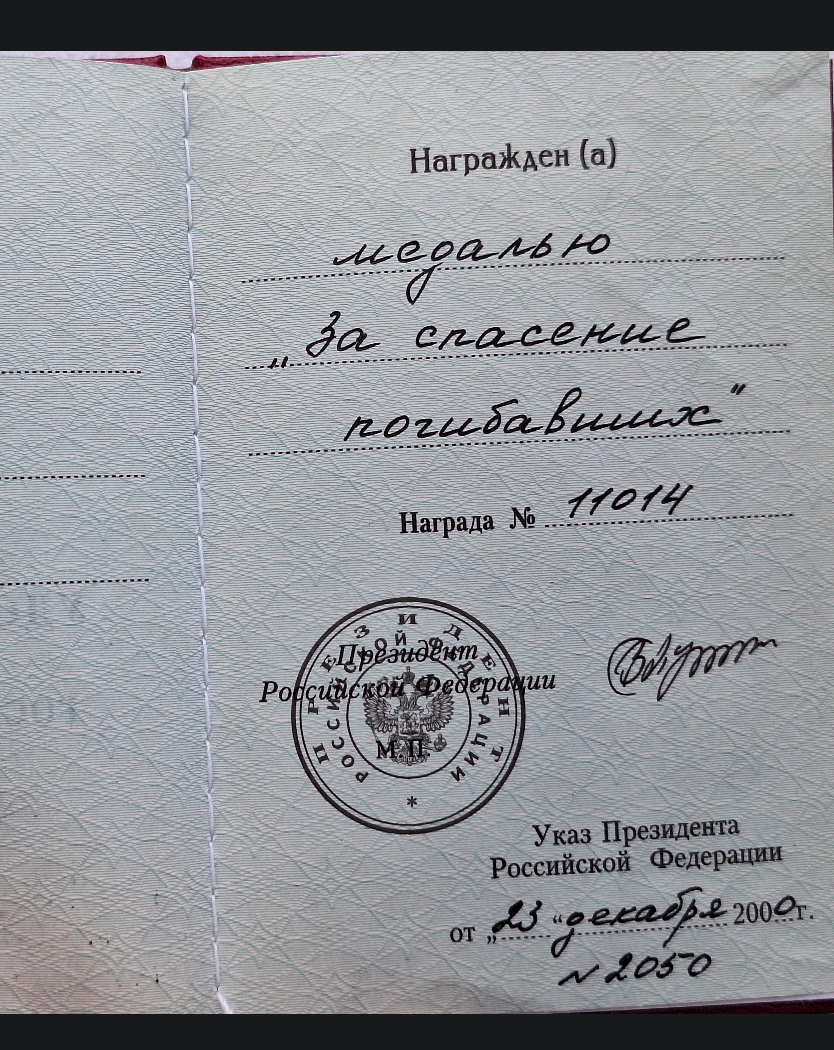 Награжден (а)
медалью
„За спасение
погибавших"
Награда № 11014
ПРЕЗИДЕНТ
РОССИЙСКОЙ ФЕДЕРАЦИИ
Президент
Российской Федерации
М.П.
*
Указ Президента
Российской Федерации
от „23 “ декабря 2000г.
N 2050